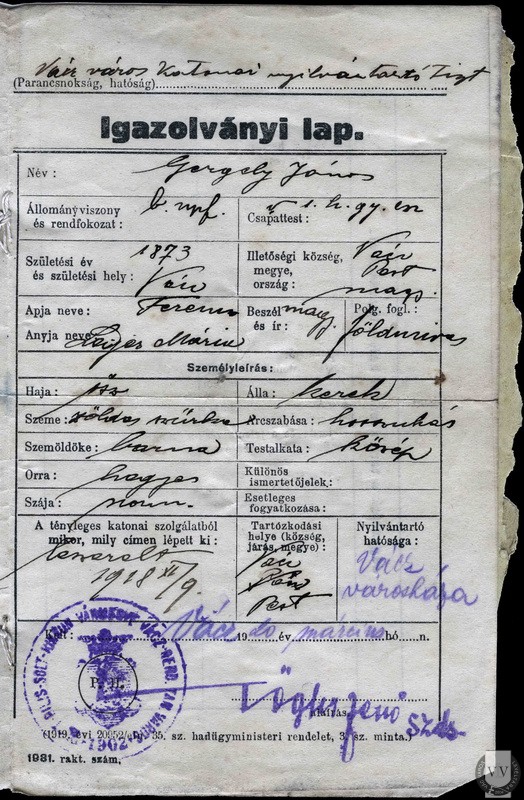 Vác város Katonai nyilvántartó Tiszt
(Parancsnokság, hatóság)
Igazolványi lap.
Név : Gergely János
Állományviszony és rendfokozat : b. npf.
Csapattest : 1. h. gy. ezr
Születési év és születési hely : 1873 Vác
Illetőségi község, megye, ország : Vác Pest magy.
Apja neve : Ferenc
Anyja neve : Mária
Beszél és ír : magy.
Polg. fogl. : földműves
Személyleírás :
Haja : ősz
Álla : kerek
Szeme : zöldes szürke
Arcszabása : hosszukás
Szemöldöke : barna
Testalkata : közép
Orra : hegyes
Különös ismertetőjelek :
Szája : norm.
Esetleges fogyatkozása :
A tényleges katonai szolgálatból mikor, mily címen lépett ki : leszerelt 1918 XI/9.
Tartózkodási helye (község, járás, megye) : Vác Vác Pest
Nyilvántartó hatósága : Vác városháza
Kelt : Vác 19 20 év március hó n.
P. H.
1902
aláírás.
(1919. évi 20952/eln. 35. sz. hadügyministeri rendelet, 3. sz. minta.)
1931. rakt. szám.
VV